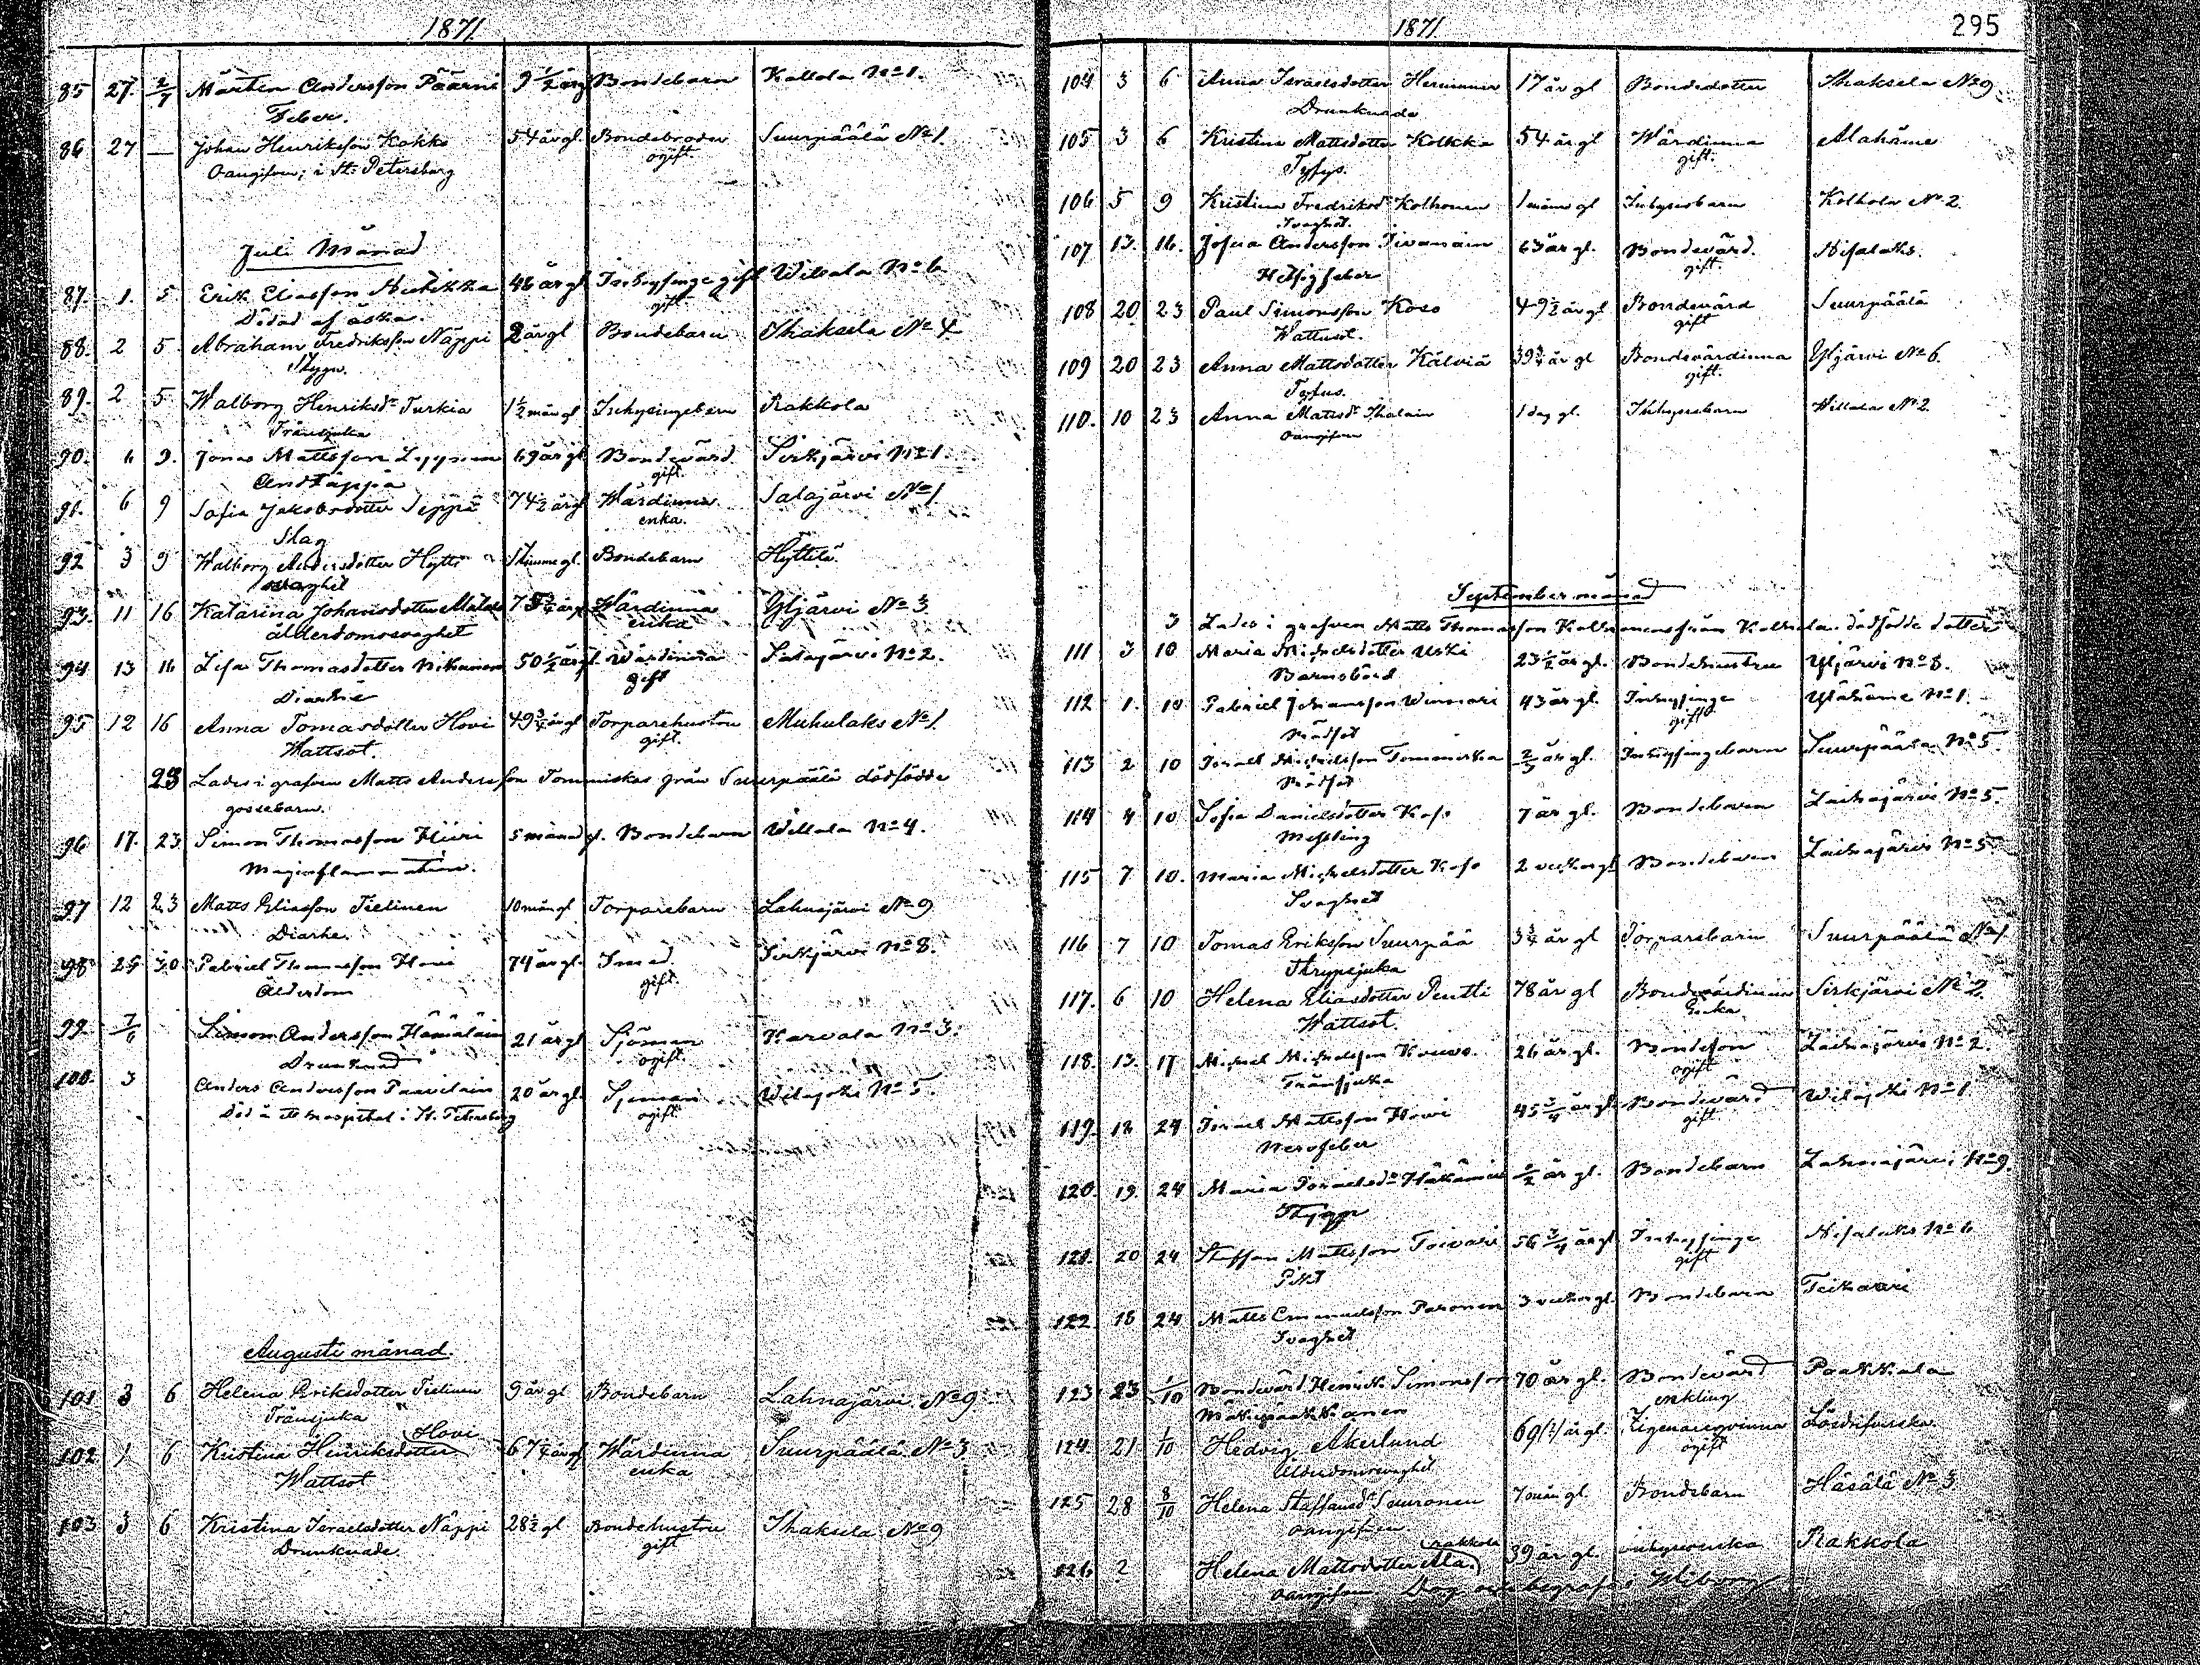 1871
85 27. 2/7 Mårten Andersson Päärni 9 1/2 årg Bondebarn Kattola No 1.
Feber.
86 27 — Johan Henriksson Kakko 54 år gl. Bondebroder Suurpäälä No 1.
Oangifven; i St. Petersborg ogift.
Juli Månad
87. 1. 5 Erik Eliasson 46 år gl Inhysinge gift Wilvala No 6.
Dödad af åska. gift.
88. 2 5. Abraham Fredriksson Näppi 2 år gl Bondebarn Ihaksela No 4
Stygn.
89. 2 5. Walborg Henriksdr Turkia 1 1/2 mån gl Inhysingebarn Rakkola
Trånsjuka
90. 6 9. Jonas Mattsson Lyynen 69 år gl Bondevärd Sirkjärvi No 1.
Andtäppa gift.
91. 6 9 Sofia Jakobsdotter Seppä 74 1/2 år gl Wärdinna Salajärvi No 1
Slag enka.
92 3 9 Walborg Andersdotter Hyttö 1 timme gl. Bondebarn Hyttilä
svaghet
93. 11 16 Katarina Johansdotter 75 3/4 år gl Wärdinna Yljärvi No 3
ålderdomssvaghet enka
94 13 16 Lisa Thomasdotter Nikunen 50 1/2 år gl. Wärdinna Salajärvi No 2.
Diarhé gift
95 12 16 Anna Tomasdotter Hovi 49 3/4 år gl Torparehustru Muhulaks No 1.
Wattsot. gift.
23 Lades i grafven Matts Andersson Tommiskas från Suurpäälä dödfödde
gossebarn.
96 17. 23 Simon Thomasson Hiiri 5 månad gl. Bondebarn Willala No 4.
Maginflammation.
97 12 23 Matts Eliasson Tielinen 10 mån gl Torparebarn Lahnajärvi No 9
Diarhe.
98 25 30 Gabriel Thomasson Hovi 74 år gl. Smed. Sirkjärvi No 8.
Ålderdom gift.
99. 7/6 Simon Andersson Hämäläin 21 år gl Sjöman Karvala No 3.
Drunknad ogift.
100. 3 Anders Andersson Paavilain 20 år gl. Sjöman Wilajoki No 5.
Död å ett hospital i St. Petersborg ogift.
Augusti månad.
101 3 6 Helena Eriksdotter Tielinen 9 år gl Bondebarn Lahnajärvi No 9
Trånsjuka
Hovi
102 1 6 Kristina Henriksdotter 67 1/4 år gl Wärdinna Suurpäälä No 3
Wattsot enka
103 3 6 Kristina Israelsdotter Näppi 28 1/2 gl Bondehustru Ihaksela No 9
Drunknade. gift
1871
295
104 3 6 Anna Israelsdotter 17 år gl Bondedotter Ihaksela No 9
Drunknade
105 3 6 Kristina Mattsdotter Kolkka 54 år gl Wärdinna Alahäme
Tyfus. gift.
106 5 9 Kristina Fredriksdr Kolhonen 1 mån gl Inhysesbarn Kolhola No 2.
Svaghet.
107 13. 16. Josua Andersson Tivanain 63 år gl. Bondevärd. Nisalaks.
Hetsig feber gift.
108 20 23 Paul Simonsson Koso 49 1/2 år gl Bondevärd Suurpäälä
Wattusot. gift
109 20 23 Anna Mattsdotter Kälviä 39 3/4 år gl Bondevärdinna Yljärvi No 6.
Tyfus. gift.
110. 10 23 Anna Mattsdr Ihalain 1 dag gl. Inhysesbarn Willala No 2.
oangifven
September månad
3 Lades i grafven Matts Thomasson Kolhonens från Kolhola dödfödde dotter
111 3 10 Maria Michelsdotter Uski 23 1/2 år gl. Bondehustru Yljärvi No 8.
Barnsbörd
112 1. 10 Gabriel Johansson Winnari 43 år gl. Inhysinge Ylähäme No 1.
Rödsot gift.
113 2 10 Israel Michelsson Tommiska 2/3 år gl. Inhysingebarn Suurpäälä No 5
Rödsot
114 4 10 Sofia Danielsdotter Koso 7 år gl. Bondebarn Laihajärvi No 5.
Messling
115 7 10. Maria Michelsdotter Koso 2 veckor gl Bondebarn Laihajärvi No 5.
Svaghet
116 7 10 Tomas Eriksson Suurpää 3 3/4 år gl Torparebarn Suurpäälä No 1.
Strypsjuka
117. 6 10 Helena Eliasdotter Pentti 78 år gl Bondevärdinna Sirkjärvi No 2.
Wattsot. Enka
118. 13. 17 Michel Michelsson Kouvo. 26 år gl. Bondeson Laihajärvi No 2.
Trånsjuka ogift
119. 18 24 Israel Mattsson Hovi 45 3/4 år gl. Bondevärd Wilajoki No 1
Nervfeber gift.
120. 19. 24 Maria Israelsdr Häkämies 1/2 år gl. Bondebarn Lahnajärvi No 9.
Stygn
121. 20 24 Staffan Mattsson Toivari 56 3/4 år gl Inhysinge Nisalaks No 6
gift
122. 18 24 Matts Emanuelsson Paronen 3 veckor gl. Bondebarn Teikari
Svaghet
123 23 1/10 Bondevärd Henrik Simonsson 70 år gl. Bondevärd Paakkala
enkling
124. 21 1/10 Hedvig Åkerlund 69 (?) år gl. Zigenareqvinna
Ålderdomssvaghet ogift
125 28 8/10 Helena Staffansdr Suuronen 7 mån gl. Bondebarn Häsälä No 3
oangifven
Rakkola
126 2 Helena Mattsdotter Ala 39 år gl. inhysesenka Rakkola
oangifven Dog och begrafs i Wiborg